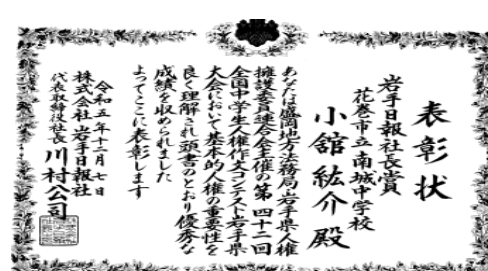 表彰状
岩手日報社長賞
花巻市立南城中学校
小舘紘介殿
あなたは盛岡地方法務局岩手県人権
擁護委員連合会主催の第四十二回
全国中学生人権作文コンテスト岩手県
大会において基本的人権の重要性を
良く理解され頭書のとおり優秀な
成績を収められました
よってここに表彰します
令和五年十二月七日
株式会社岩手日報社
代表取締役社長川村公司